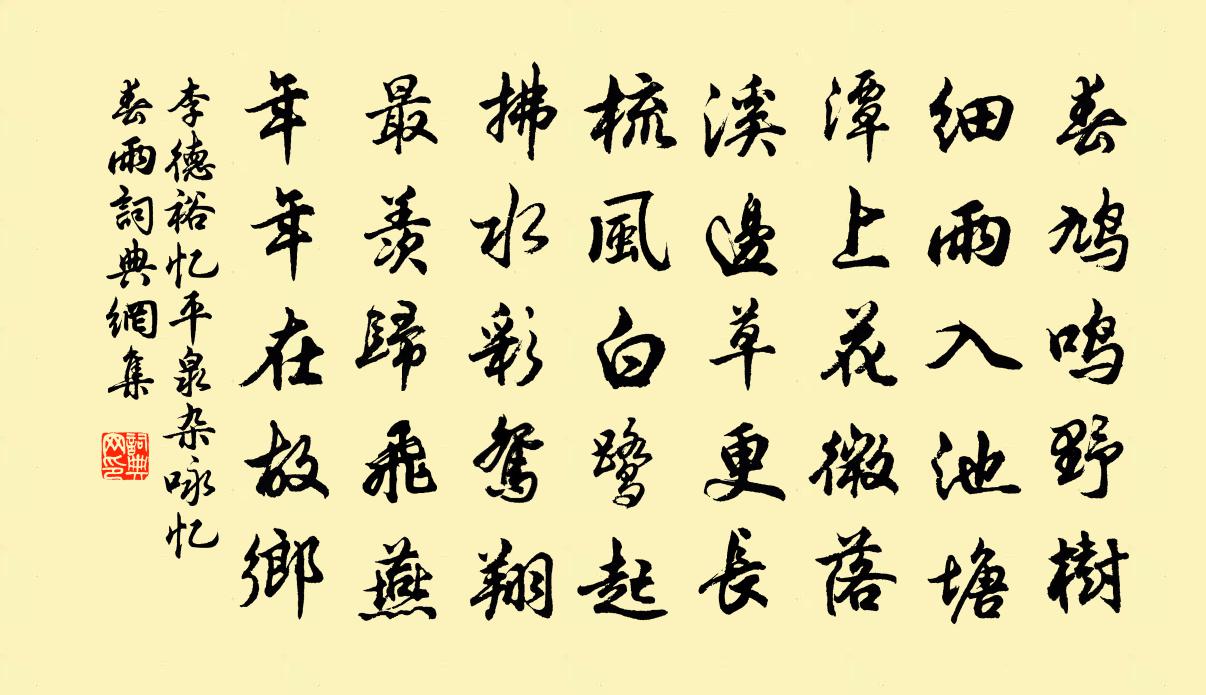 春鳩鳴野樹
細雨入池塘
潭上花微落
溪邊草更長
梳風白鷺起
拂水彩鴛翔
最羨歸飛燕
年年在故鄉
李德裕忆平泉杂咏忆
春雨詞典網集
詞典网印